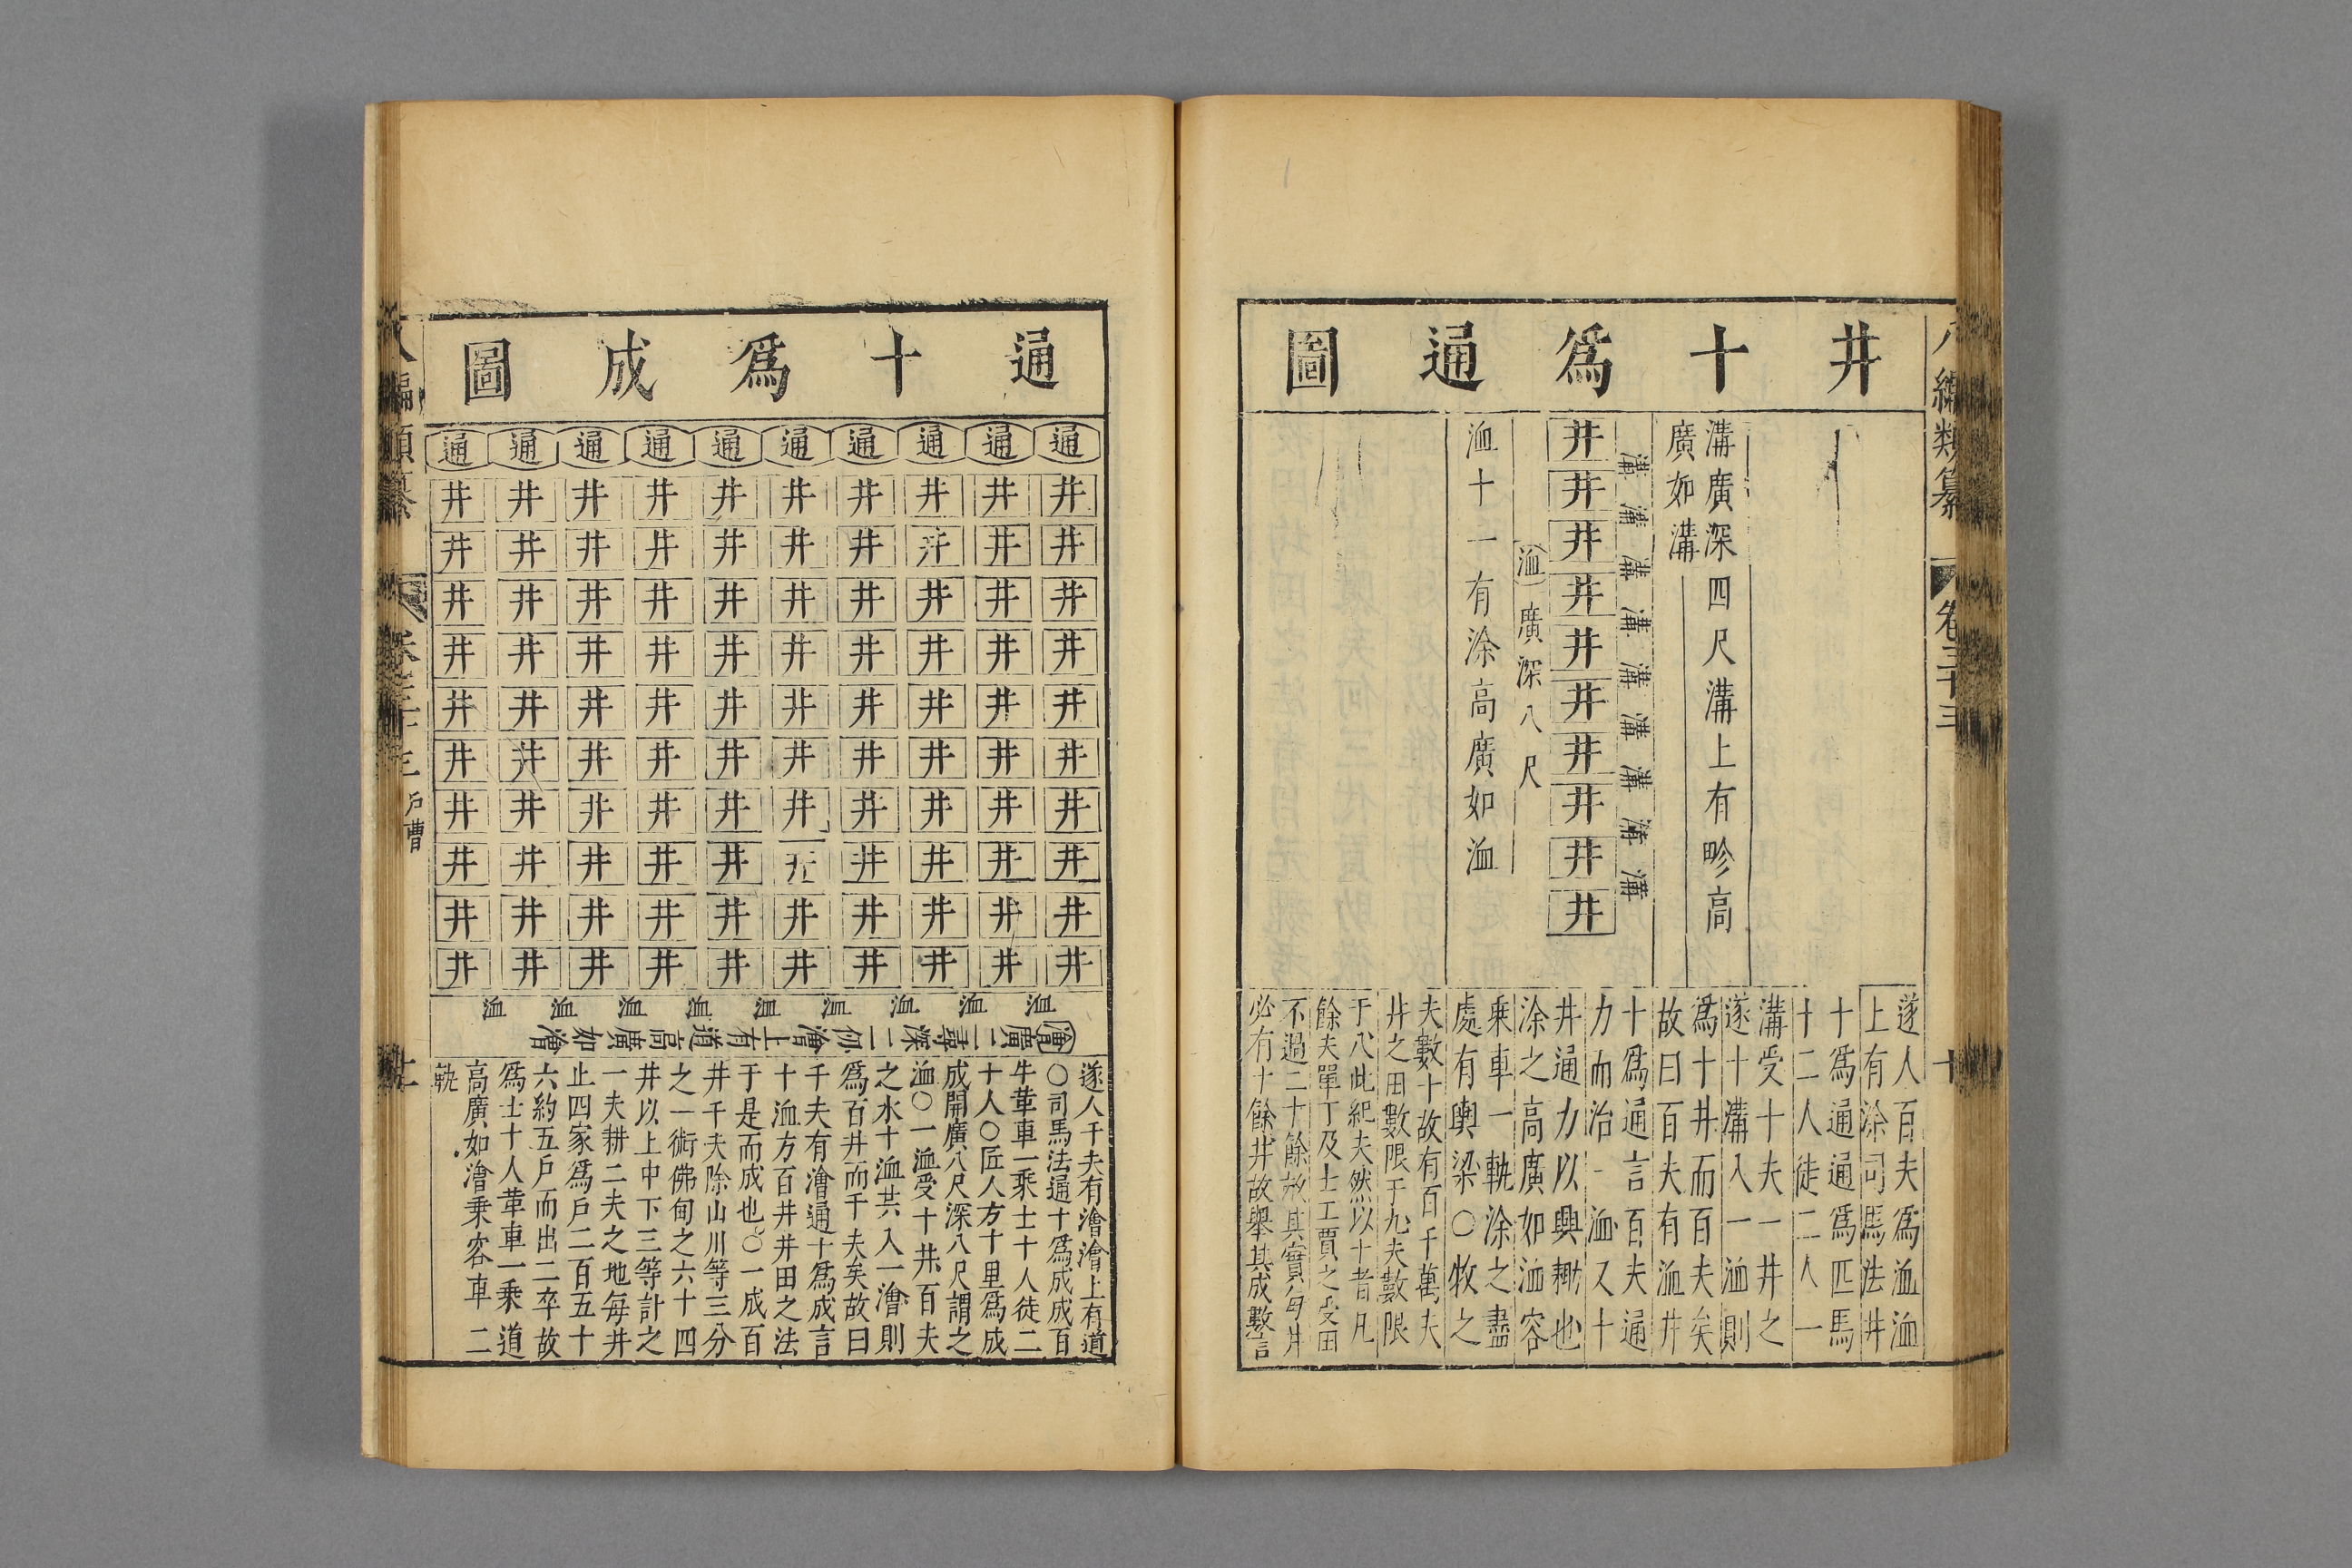 井十爲通圖
溝廣深四尺溝上有畛高
廣如溝
溝溝溝溝溝溝溝溝溝
井井井井井井井井井井
洫廣深八尺
洫十一有涂高廣如洫
遂人百夫爲洫洫
上有涂司馬法井
十爲通通爲匹馬
十二人徒二人一
溝受十夫一井之
遂十溝入一洫則
爲十井而百夫矣
故曰百夫有洫井
十爲通言百夫通
力而治一洫又十
井通力以興耡也
涂之高廣如洫容
乘車一軌涂之盡
處有輿梁〇牧之
夫數十故有百千萬夫
井之田數限于九夫數限
于八此紀夫然以十者凡
餘夫單丁及士工賈之受田
不過二十餘故其實每井
必有十餘井故舉其成數言
八編類纂
卷三十三
十
通十爲成圖
通通通通通通通通通通
井井井井井井井井井井
井井井井井井井井井井
井井井井井井井井井井
井井井井井井井井井井
井井井井井井井井井井
井井井井井井井井井井
井井井井井井井井井井
井井井井井井井井井井
井井井井井井井井井井
井井井井井井井井井井
洫洫洫洫洫洫洫洫洫
澮廣二尋深二仞澮上有道高廣如澮
遂人千夫有澮澮上有道
〇司馬法通十爲成成百
牛革車一乘士十人徒二
十人〇匠人方十里爲成
成開廣八尺深八尺謂之
洫〇一洫受十井百夫
之水十洫共入一澮則
爲百井而千夫矣故曰
千夫有澮通十爲成言
十洫方百井井田之法
于是而成也〇一成百
井千夫除山川等三分
之一術佛甸之六十四
井以上中下三等計之
一夫耕二夫之地每井
止四家爲戶二百五十
六約五戶而出二卒故
爲士十人革車一乘道
高廣如澮乘容車二
軌
八編類纂
卷三十三
戶曹